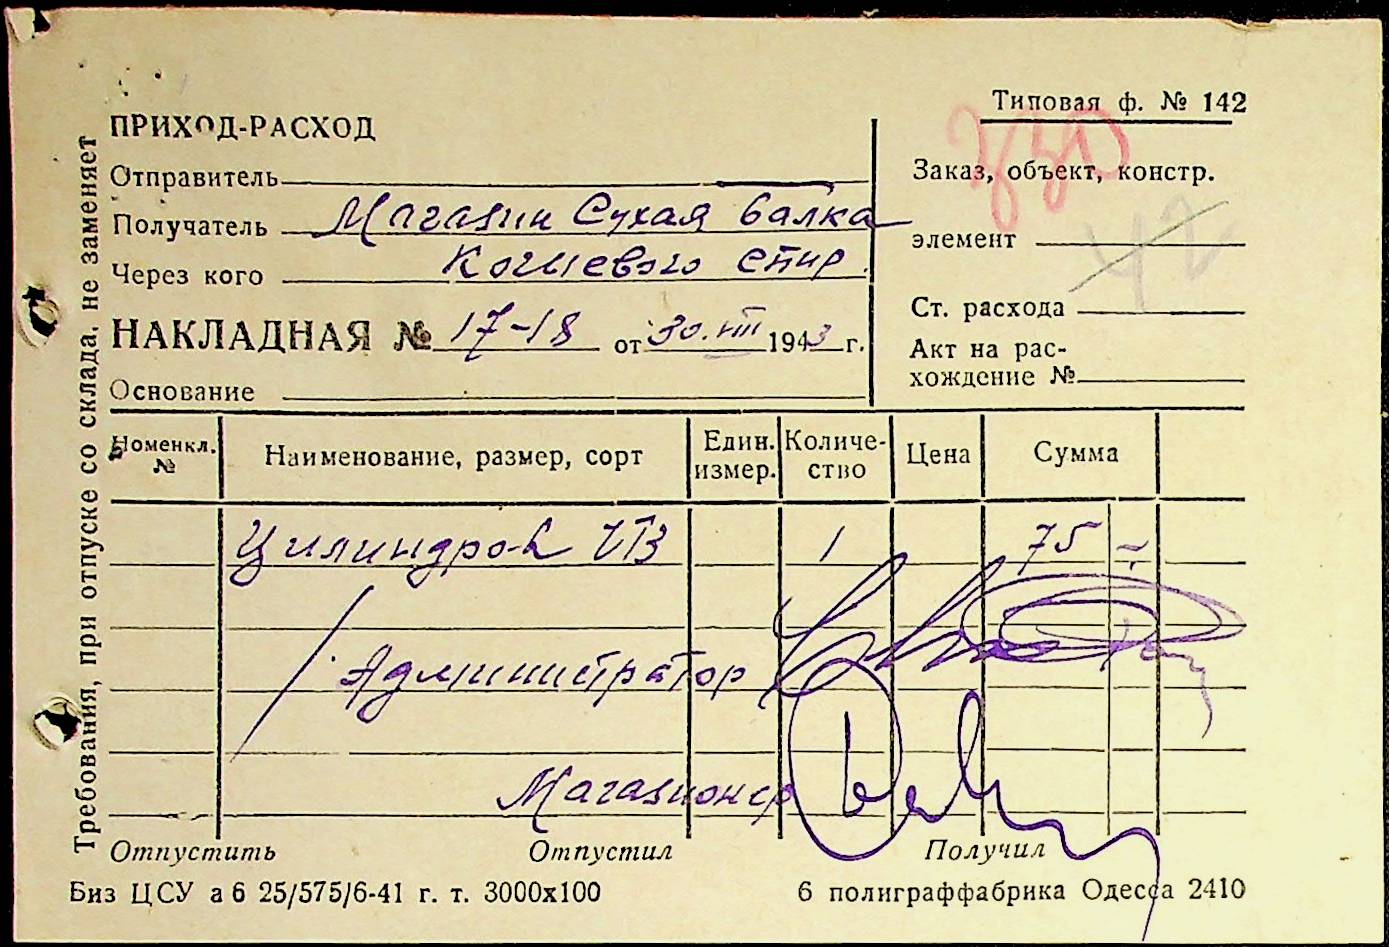 Типовая ф. № 142
ПРИХОД-РАСХОД
Отправитель
Заказ, объект, констр.
Получатель Магазин Сухая балка
элемент
Через кого
НАКЛАДНАЯ № 17-18 от 30.VIII 1943 г.
Ст. расхода
Акт на рас-
хождение №
Основание
Номенкл. №
Наименование, размер, сорт
Един. измер.
Количе-
ство
Цена
Сумма
1 75 –
Администратор
Магазионер
Отпустить Отпустил Получил
Биз ЦСУ а б 25/575/6-41 г. т. 3000х100 6 полиграффабрика Одесса 2410
Требования, при отпуске со склада, не заменяет